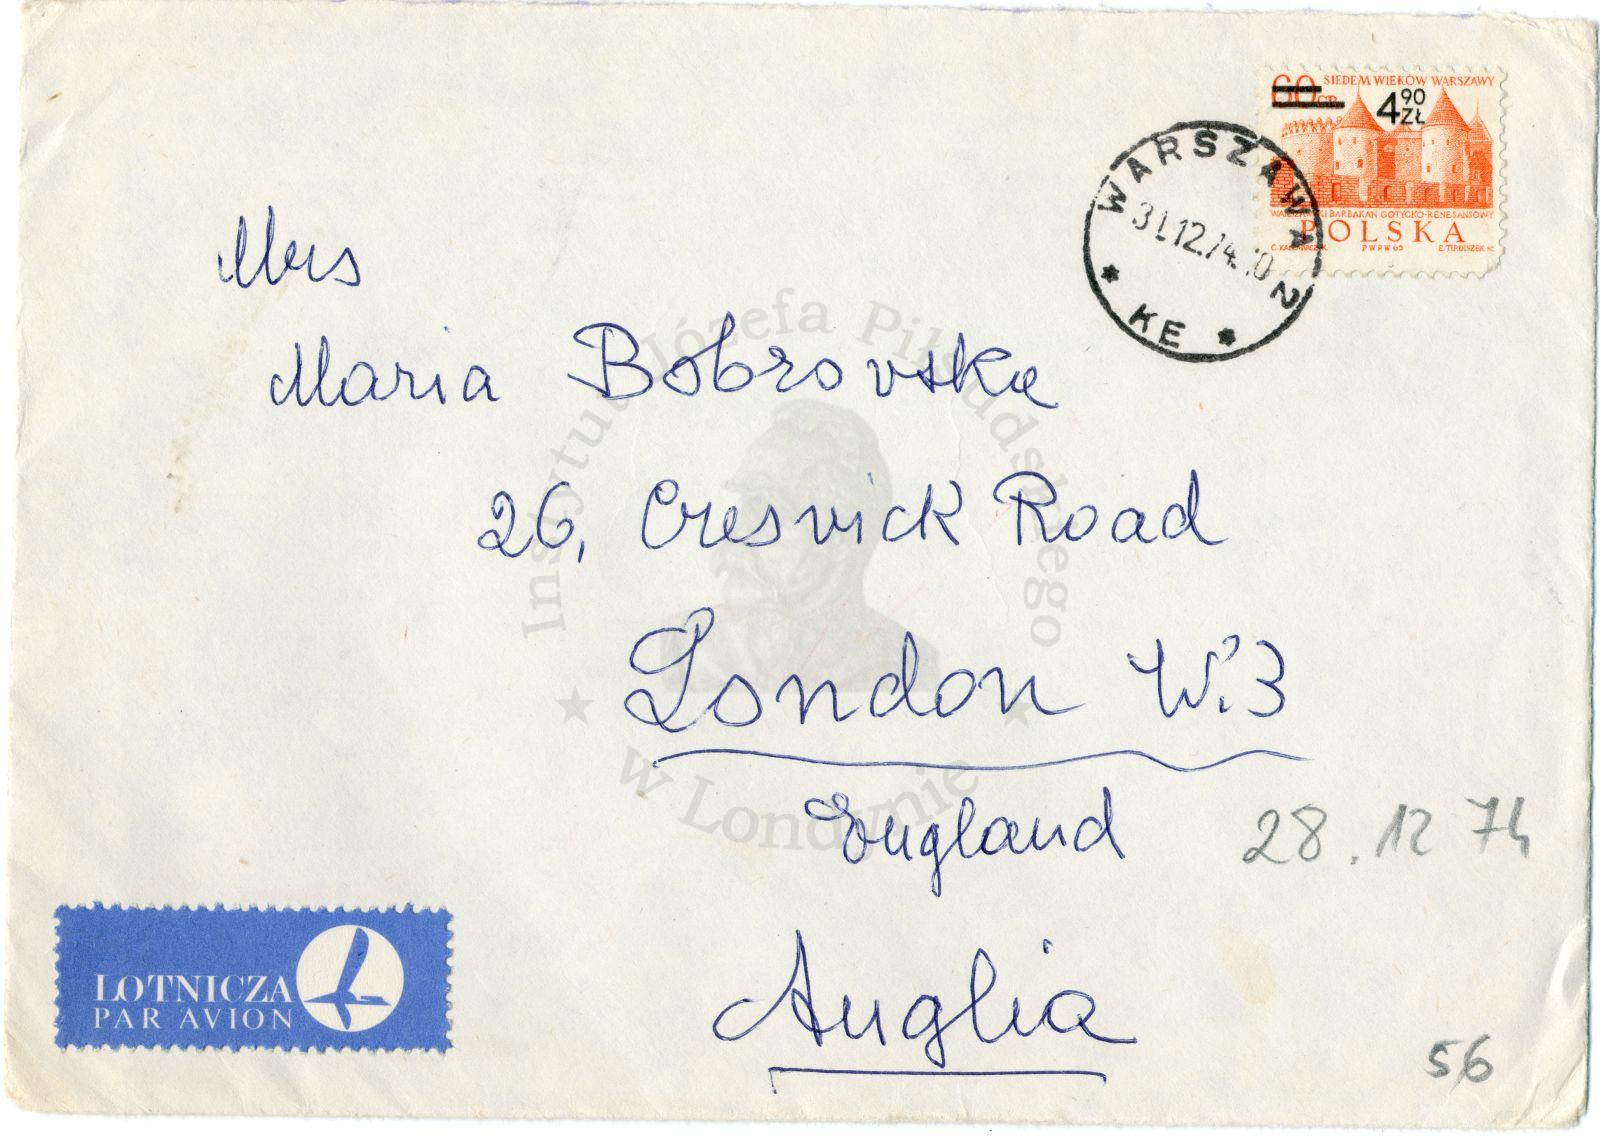 60 GR
SIEDEM WIEKÓW WARSZAWY
4 90 ZŁ
BARBAKAN GOTYCKO-RENESANSOWY
POLSKA
PWPW 65
E. TIRDISZEK SC.
WARSZAWA 2
31.12.74
* KE *
Mrs
Maria Bobrovska
26, Cresvick Road
London W.3
England
28.12 74
Anglia
LOTNICZA
PAR AVION
56
Instytut Józefa Piłsudskiego
w Londynie